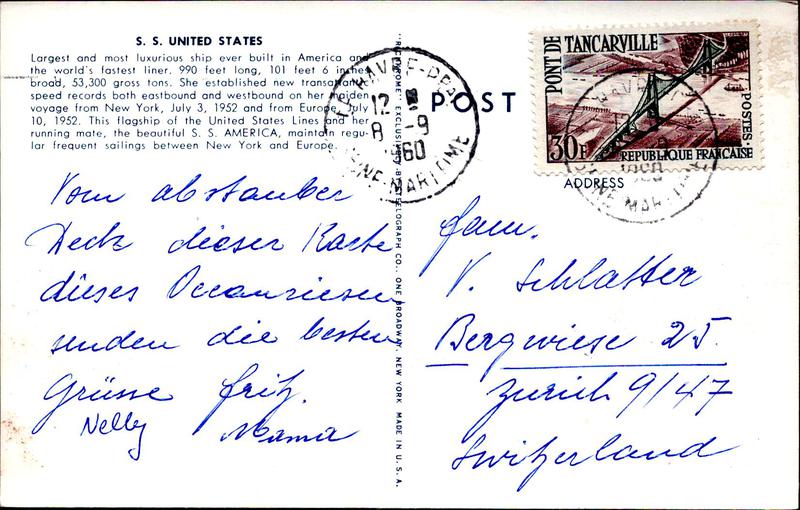 S. S. UNITED STATES
Largest and most luxurious ship ever built in America and
the world's fastest liner. 990 feet long, 101 feet 6 inches
broad, 53,300 gross tons. She established new transatlantic
speed records both eastbound and westbound on her maiden
voyage from New York, July 3, 1952 and from Europe, July
10, 1952. This flagship of the United States Lines and her
running mate, the beautiful S. S. AMERICA, maintain regu-
lar frequent sailings between New York and Europe.
Vom abstauber
Deck dieser Karte
dieses Oceanriesen
senden die besten
Grüsse Fritz.
Nelly Mama
CO., ONE BROADWAY, NEW YORK MADE IN U.S.A.
LE HAVRE-PPAL
12
8 -9
1960
SEINE-MARITIME
POST
PONT DE TANCARVILLE
30F
POSTES
REPUBLIQUE FRANÇAISE
ADDRESS
Fam.
V. Schlatter
Bergwiese 25
Zürich 9/47
Switzerland